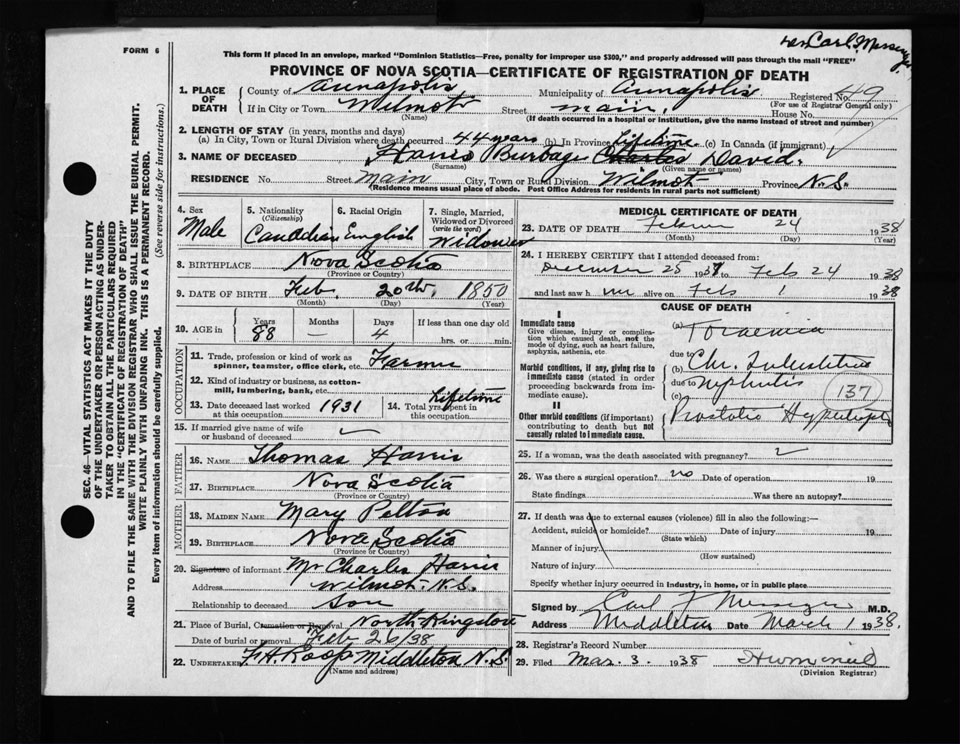 FORM 6
This form if placed in an envelope, marked "Dominion Statistics—Free, penalty for improper use $300," and properly addressed will pass through the mail "FREE"
PROVINCE OF NOVA SCOTIA—CERTIFICATE OF REGISTRATION OF DEATH
1. PLACE OF DEATH
County of Annapolis Municipality of Annapolis Registered No. 49
(For use of Registrar General only)
If in City or Town Wilmot Street main House No.
(Name) (If death occurred in a hospital or institution, give the name instead of street and number)
2. LENGTH OF STAY (in years, months and days)
(a) In City, Town or Rural Division where death occurred 44 years (b) In Province Lifetime (c) In Canada (if immigrant)
3. NAME OF DECEASED Harris Burbage Charles David.
(Surname) (Given name or names)
RESIDENCE No. Street Main City, Town or Rural Division Wilmot Province N.S.
(Residence means usual place of abode. Post Office Address for residents in rural parts not sufficient)
SEC. 46—VITAL STATISTICS ACT MAKES IT THE DUTY
OF THE UNDERTAKER OR PERSON ACTING AS UNDER-
TAKER TO OBTAIN ALL THE PARTICULARS REQUIRED
IN THE "CERTIFICATE OF REGISTRATION OF DEATH"
AND TO FILE THE SAME WITH THE DIVISION REGISTRAR WHO SHALL ISSUE THE BURIAL PERMIT.
WRITE PLAINLY WITH UNFADING INK. THIS IS A PERMANENT RECORD.
Every item of information should be carefully supplied. (See reverse side for instructions.)
4. Sex Male
5. Nationality (Citizenship) Canadian
6. Racial Origin English
7. Single, Married, Widowed or Divorced (write the word) Widower
8. BIRTHPLACE Nova Scotia
(Province or Country)
9. DATE OF BIRTH Feb. 20th, 1850
(Month) (Day) (Year)
10. AGE in Years 88 Months — Days 4 If less than one day old
hrs. or min.
OCCUPATION
11. Trade, profession or kind of work as spinner, teamster, office clerk, etc. Farmer
12. Kind of industry or business, as cotton-mill, lumbering, bank, etc.
13. Date deceased last worked at this occupation 1931
14. Total years spent in this occupation Lifetime
15. If married give name of wife or husband of deceased
FATHER
16. NAME Thomas Harris
17. BIRTHPLACE Nova Scotia
(Province or Country)
MOTHER
18. MAIDEN NAME Mary Pelton
19. BIRTHPLACE Nova Scotia
(Province or Country)
20. Signature of informant Mr Charles Harris
Address Wilmot N.S.
Relationship to deceased son
21. Place of Burial, Cremation or Removal North Kingston
Date of burial or removal Feb 26/38
22. UNDERTAKER F.H. Roop Middleton N.S.
(Name and address)
MEDICAL CERTIFICATE OF DEATH
23. DATE OF DEATH 24 1938
(Month) (Day) (Year)
24. I HEREBY CERTIFY that I attended deceased from:
December 25 1937 to Feb 24 1938
and last saw h alive on Feb 1 1938
CAUSE OF DEATH
I
Immediate cause
Give disease, injury or complication which caused death, not the mode of dying, such as heart failure, asphyxia, asthenia, etc.
Morbid conditions, if any, giving rise to immediate cause (stated in order proceeding backwards from immediate cause).
II
Other morbid conditions (if important) contributing to death but not causally related to immediate cause.
(a)
due to
(b) Chr.
due to nephritis
(c) 137
25. If a woman, was the death associated with pregnancy?
26. Was there a surgical operation? no Date of operation 19
State findings Was there an autopsy?
27. If death was due to external causes (violence) fill in also the following:—
Accident, suicide or homicide? Date of injury 19
(State which)
Manner of injury
(How sustained)
Nature of injury
Specify whether injury occurred in industry, in home, or in public place
Signed by Carl M.D.
Address Middleton Date March 1 1938.
28. Registrar's Record Number
29. Filed Mar. 3. 1938
(Division Registrar)